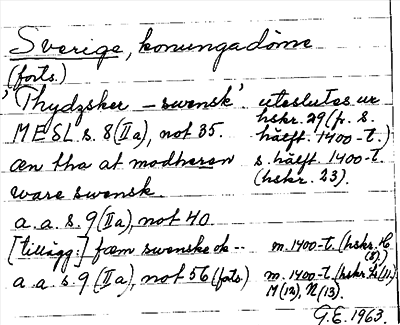 Sverige, konungadöme
(forts.)
'Thydzsker – swensk' uteslutes ur
MESL s. 8 (IIa), not 35. hskr. 29 (fr. s.
hälft. 1400-t.)
æn tha at modheren s. hälft. 1400-t.
ware swensk (hskr. 23).
a.a. s. 9 (IIa), not 40.
[tillägg:] fæm swenske ok -- m. 1400-t. (hskr. H
(8).)
a.a. s. 9 (IIa), not 56 (forts) m. 1400-t. (hskr. (11)
M (12), N (13).
G.E. 1963.